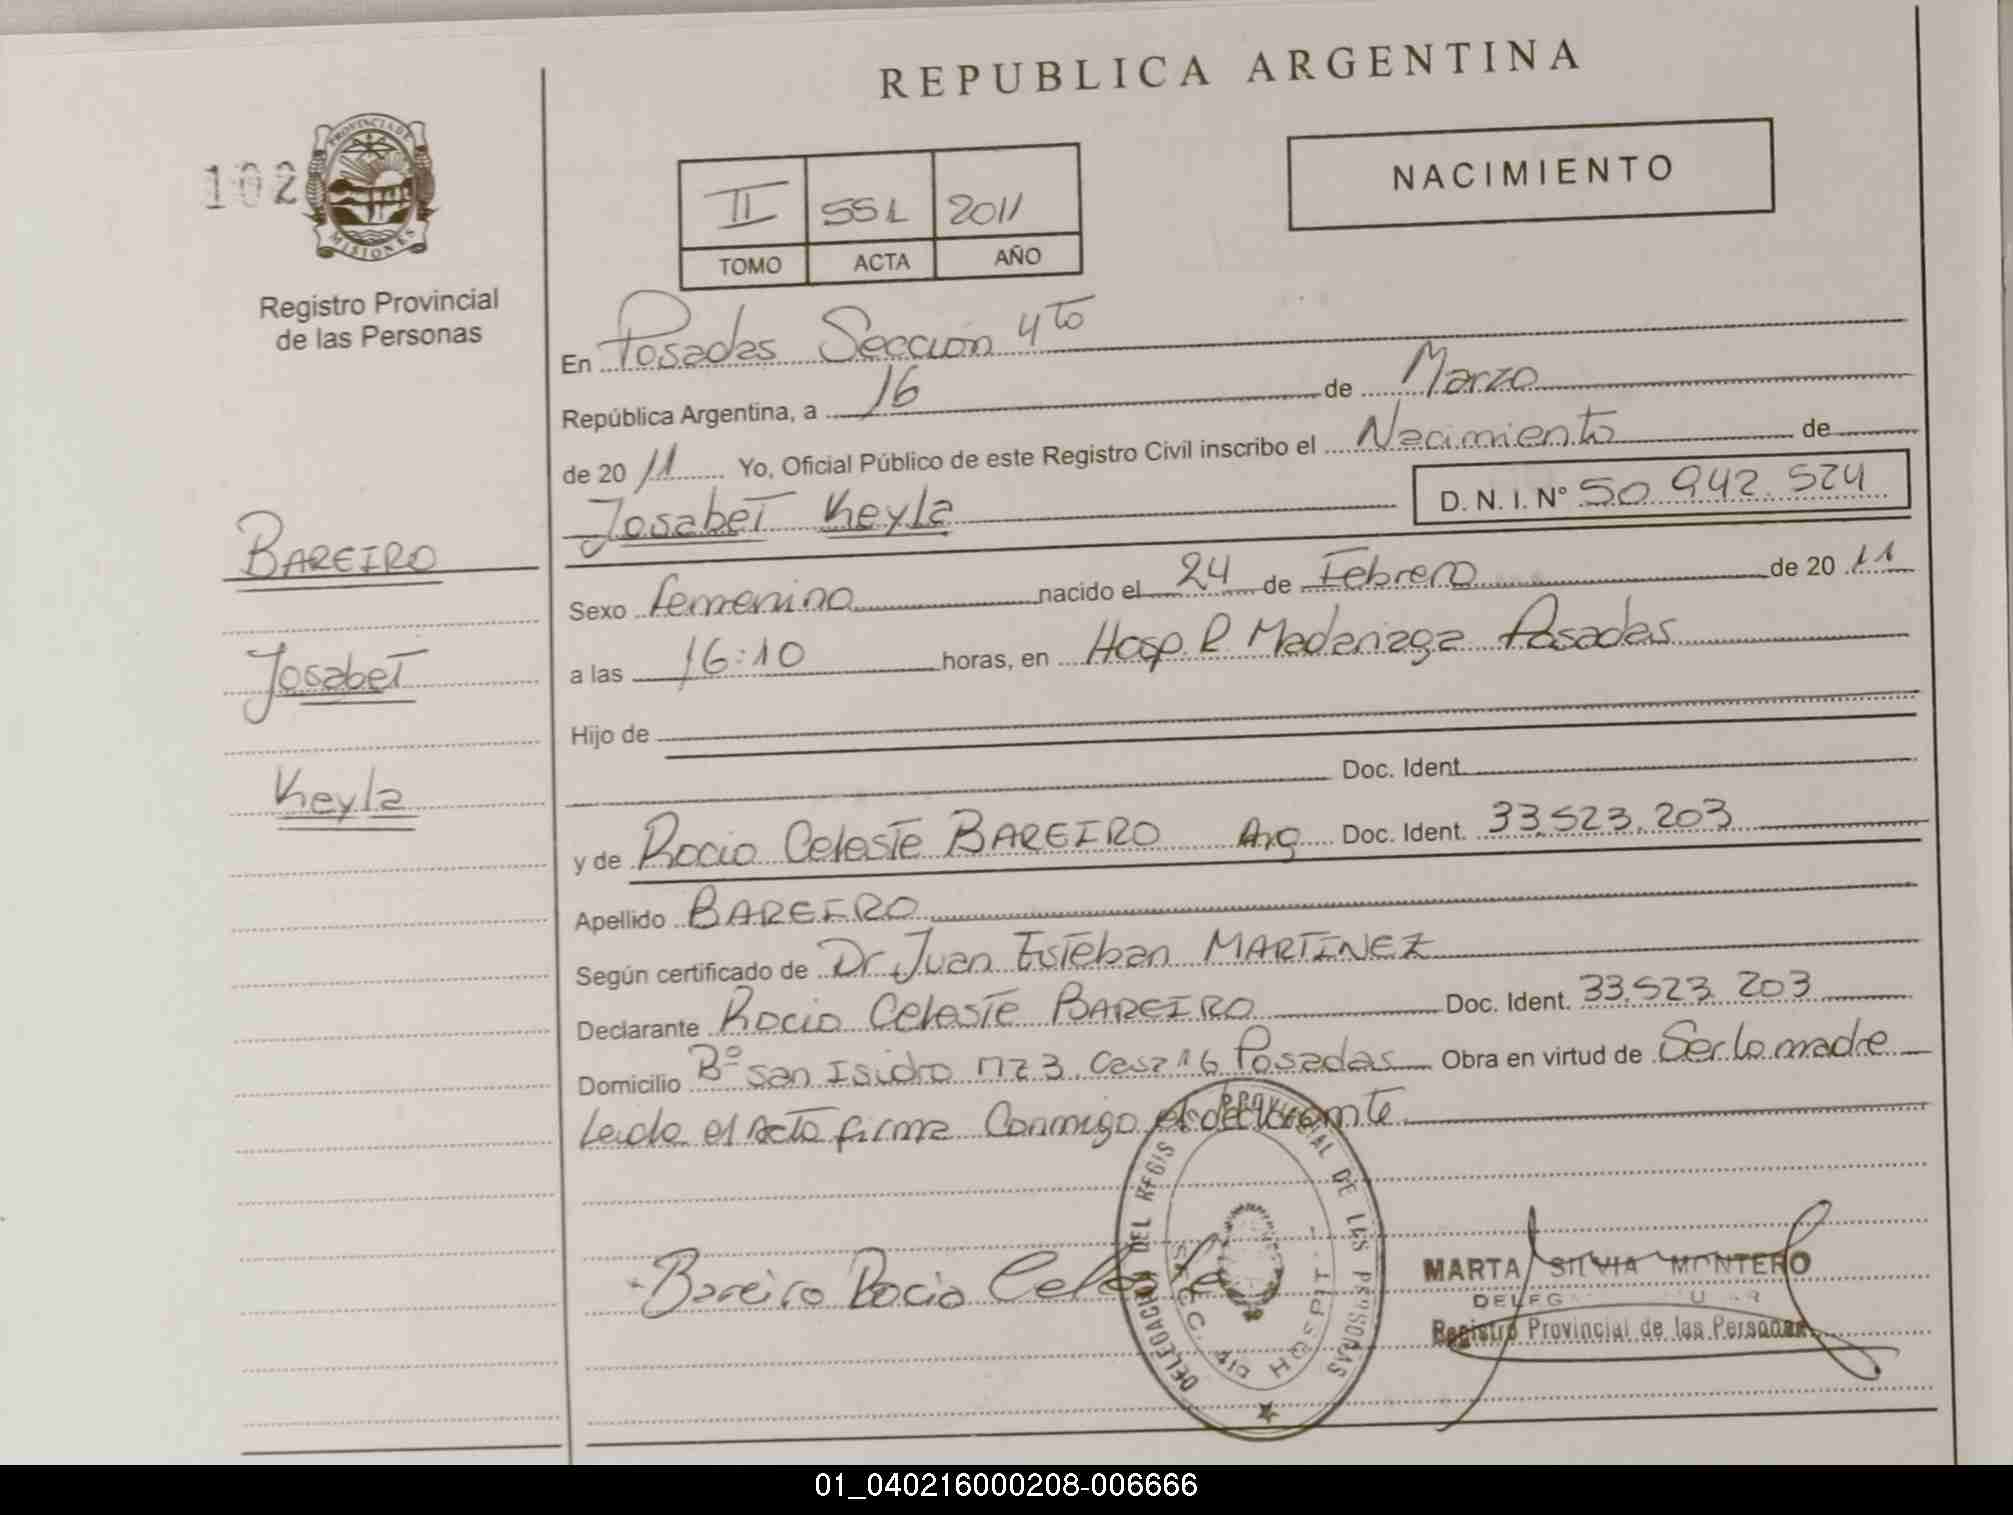 REPUBLICA ARGENTINA
NACIMIENTO
102
PROVINCIA DE
MISIONES
Registro Provincial
de las Personas
II 551 2011
TOMO ACTA AÑO
En Posadas Sección 4to
República Argentina, a 16 de Marzo
de 20 11 Yo, Oficial Público de este Registro Civil inscribo el Nacimiento de
Josabet Keyla D. N. I. Nº 50.942.524
BAREIRO
Josabet
Keyla
Sexo femenino nacido el 24 de Febrero de 20 11
a las 16:10 horas, en Hosp. R. Madariaga Posadas
Hijo de
Doc. Ident.
y de Rocio Celeste BAREIRO Arg Doc. Ident. 33.523.203
Apellido BAREIRO
Según certificado de Dr Juan Esteban MARTINEZ
Declarante Rocio Celeste BAREIRO Doc. Ident. 33.523.203
Domicilio Bº San Isidro Mz 3 casa 16 Posadas Obra en virtud de Ser la madre
Leida el acta firma Conmigo el declarante
Bareiro Rocio Celeste
DELEGACION DEL REGIS PROVINCIAL DE LAS PERSONAS
SECC. 4ta HOSPIT
MARTA SILVIA MONTERO
Registro Provincial de las Personas
01_040216000208-006666